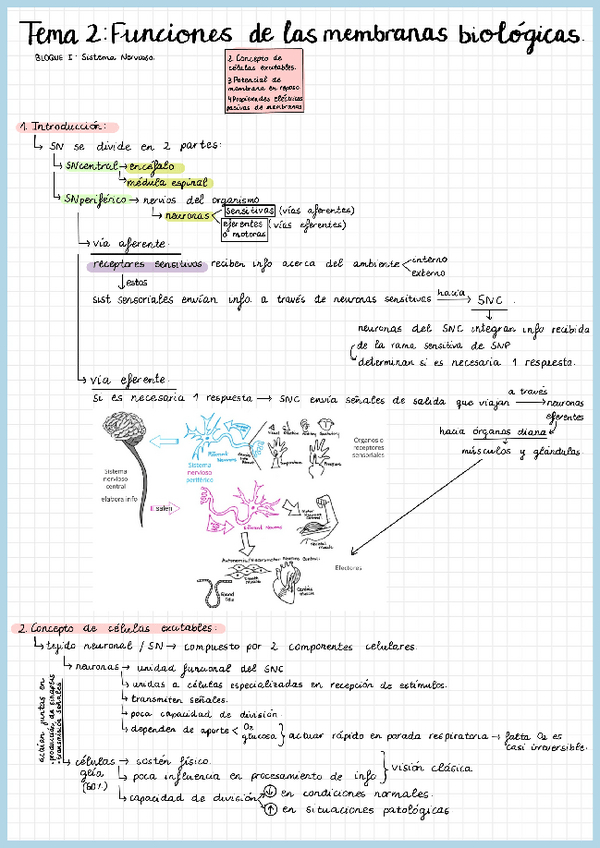 Tema 2: Funciones de las membranas biológicas.
BLOQUE I: Sistema Nervioso.
2. Concepto de
células exutables.
3. Potencial de
membrana en reposo
4. Propiedades eléctricas
pasivas de membranas
1. Introducción:
SN se divide en 2 partes:
SNcentral → encéfalo
médula espinal
SNperiférico → nervios del organismo
neuronas sensitivas (vías aferentes)
eferentes (vías eferentes)
o motoras
vía aferente.
receptores sensitivos reciben info acerca del ambiente interno
externo
estos
sist sensoriales envían info a través de neuronas sensitivas hacia → SNC.
neuronas del SNC integran info recibida
de la rama sensitiva de SNP
determinan si es necesaria 1 respuesta.
vía eferente.
Si es necesaria 1 respuesta → SNC envía señales de salida que viajan a través → neuronas
eferentes
hacia órganos diana
músculos y glándulas.
Sistema
nervioso
central
elabora info
Sistema
nervioso
periférico
Afferent
Neurons
Organos o
receptores
sensoriales
E salen
Efferent Neurons
Skeletal
muscle
Efectores
Smooth
muscle
Cardiac
muscle
2. Concepto de células exutables.
tejido neuronal / SN → compuesto por 2 componentes celulares.
neuronas → unidad funcional del SNC
unidas a células especializadas en recepción de estímulos.
transmiten señales.
poca capacidad de división.
dependen de aporte O₂
glucosa } actuar rápido en parada respiratoria → falta O₂ es
casi irreversible.
actúan juntas en
·producción de sinapsis
·transmisión señales
células → sostén físico.
glía
(50%)
poca influencia en procesamiento de info } visión clásica
capacidad de división ↓ en condiciones normales.
↑ en situaciones patológicas